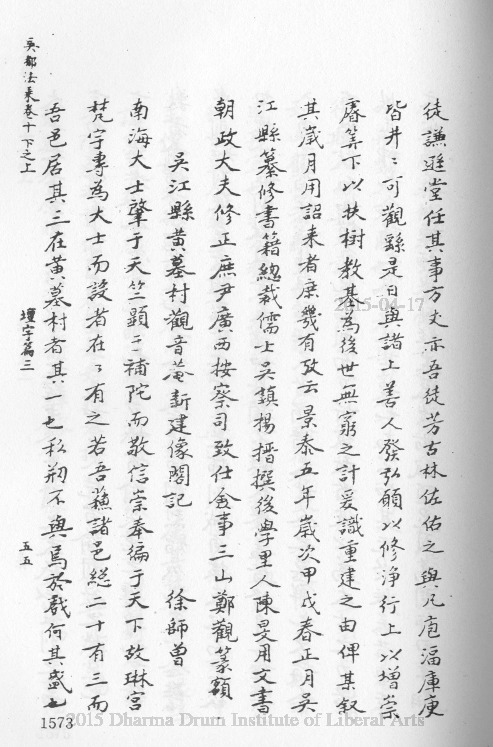 徒謙遜堂任其事方丈亦吾徒芳古林佐佑之與凡庖湢庫庾
皆井〻可觀繇是日與諸上善人發弘願以修淨行上以增崇
睿筭下以扶樹教基為後世無窮之計爰識重建之由俾某叙
其嵗月用詔来者庶幾有攷云景泰五年嵗次甲戌春正月吳
江縣纂修書籍總裁儒士吳鎮楊撰後學里人陳旻用文書
朝政大夫修正庶尹廣西按察司致仕僉事三山鄭觀篆額
吳江縣黄墓村觀音菴新建像閣記 徐師曽
南海大士肇于天竺顯于補陀而敬信崇奉徧于天下故琳宮
梵宇專為大士而設者在〻有之若吾蘓諸邑総二十有三而
吾邑居其三在黄墓村者其一也私剏不與焉於戲何其盛也
吳都法乘卷十下之上
壇宇篇三
五五
1573
2015-04-17
2015 Dharma Drum Institute of Liberal Arts